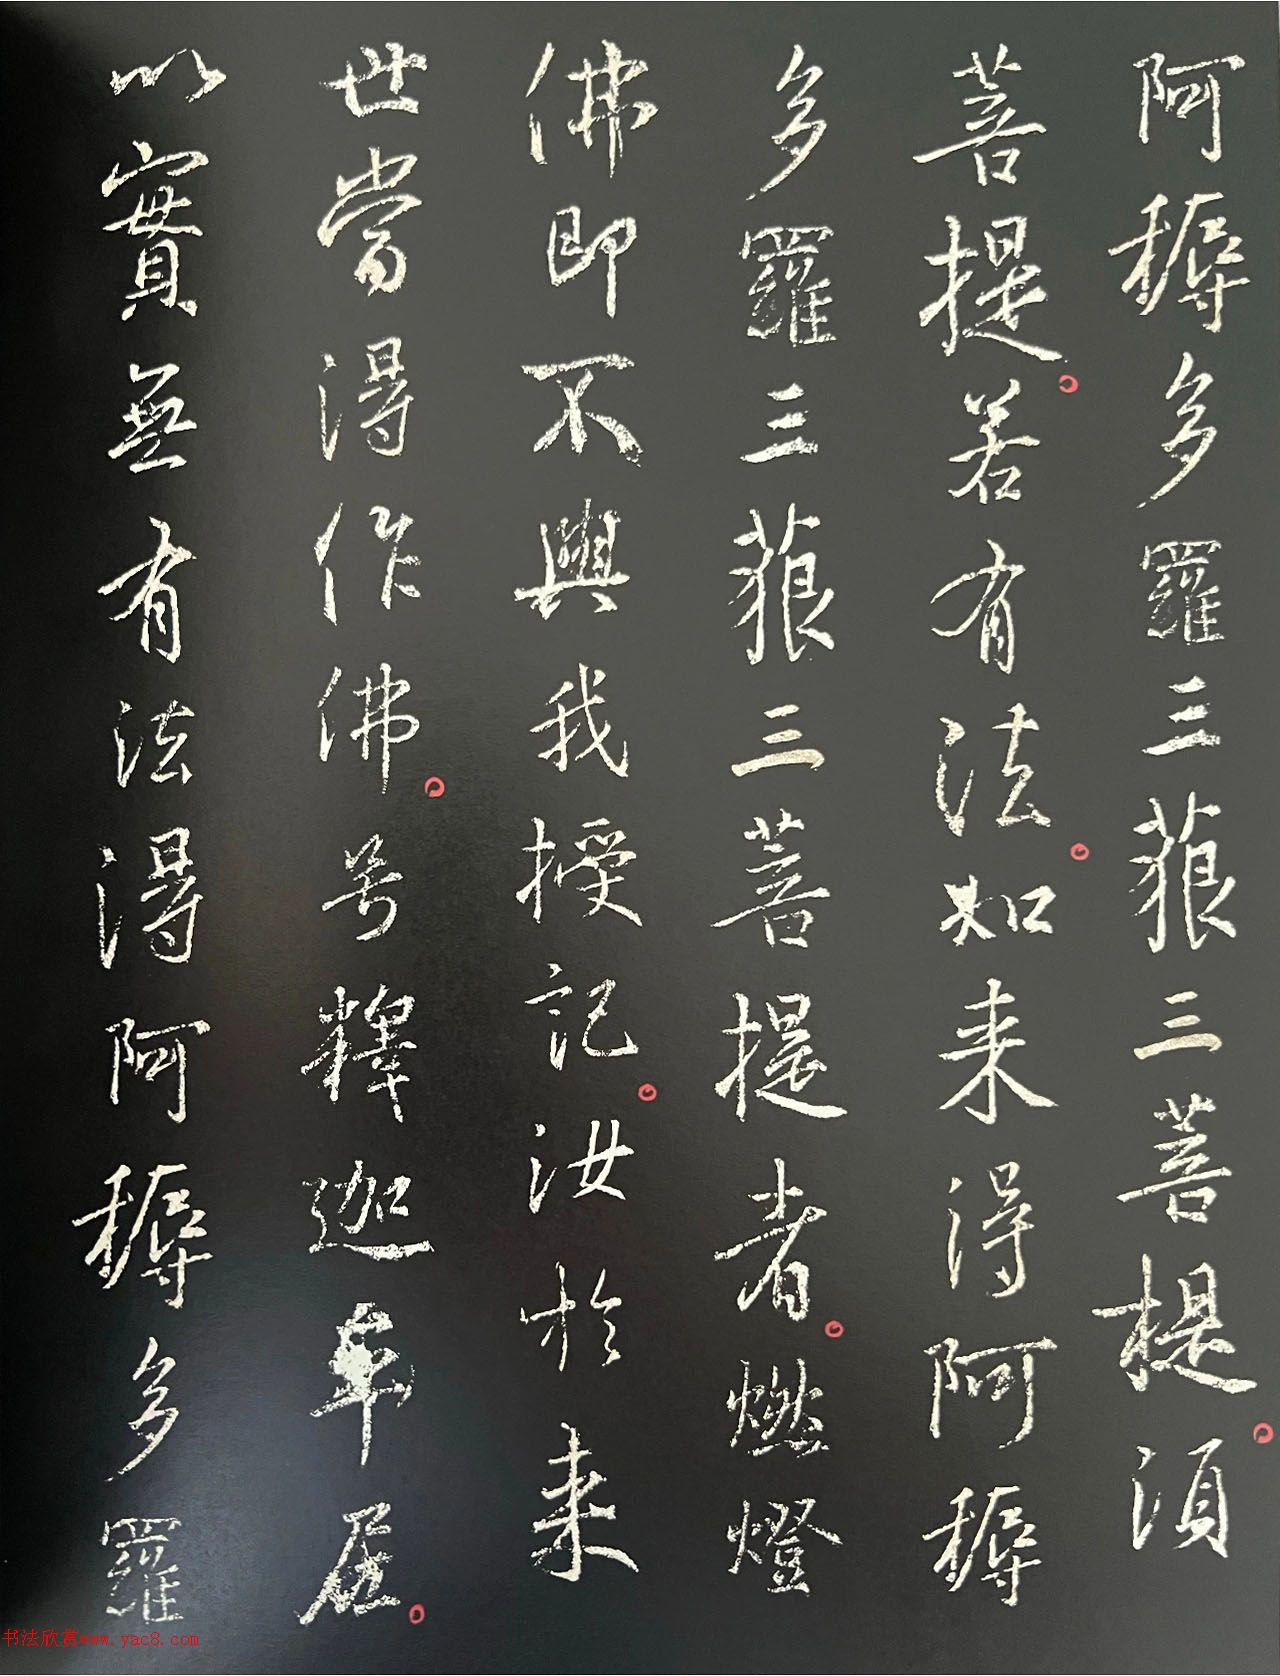 阿耨多羅三藐三菩提須
菩提若有法如来得阿耨
多羅三藐三菩提者燃燈
佛即不與我授記汝於来
世當得作佛号釋迦牟尼
以實無有法得阿耨多羅
书法欣赏www.yac8.com